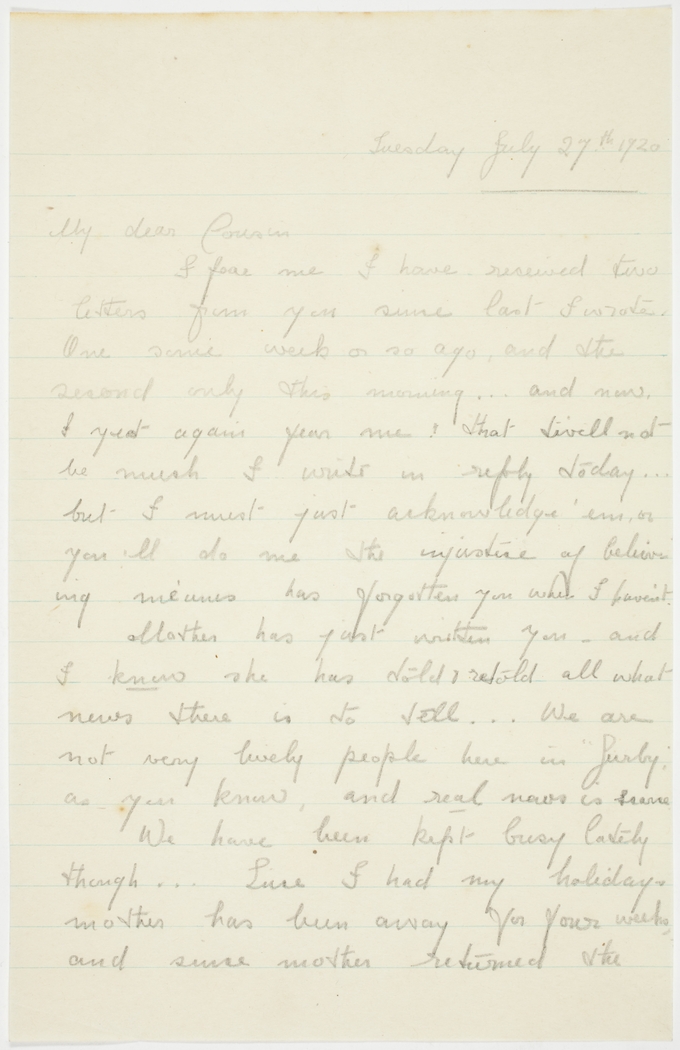 Tuesday July 27th 1920
My dear Cousin
I fear me I have received two
letters from you since last I wrote.
One some week or so ago, and the
second only this morning... and now,
I yet again fear me! that twill not
be much I write in reply today...
but I must just acknowledge 'em, or
you'll do me the injustice of believ
ing me has forgotten you when I haven't.
Mother has just written you - and
I know she has told & retold all what
news there is to tell... We are
not very lively people here in "Jurby,"
as you know, and real news is scarce
We have been kept busy lately
though... Since I had my holidays
mother has been away for four weeks,
and since mother returned the